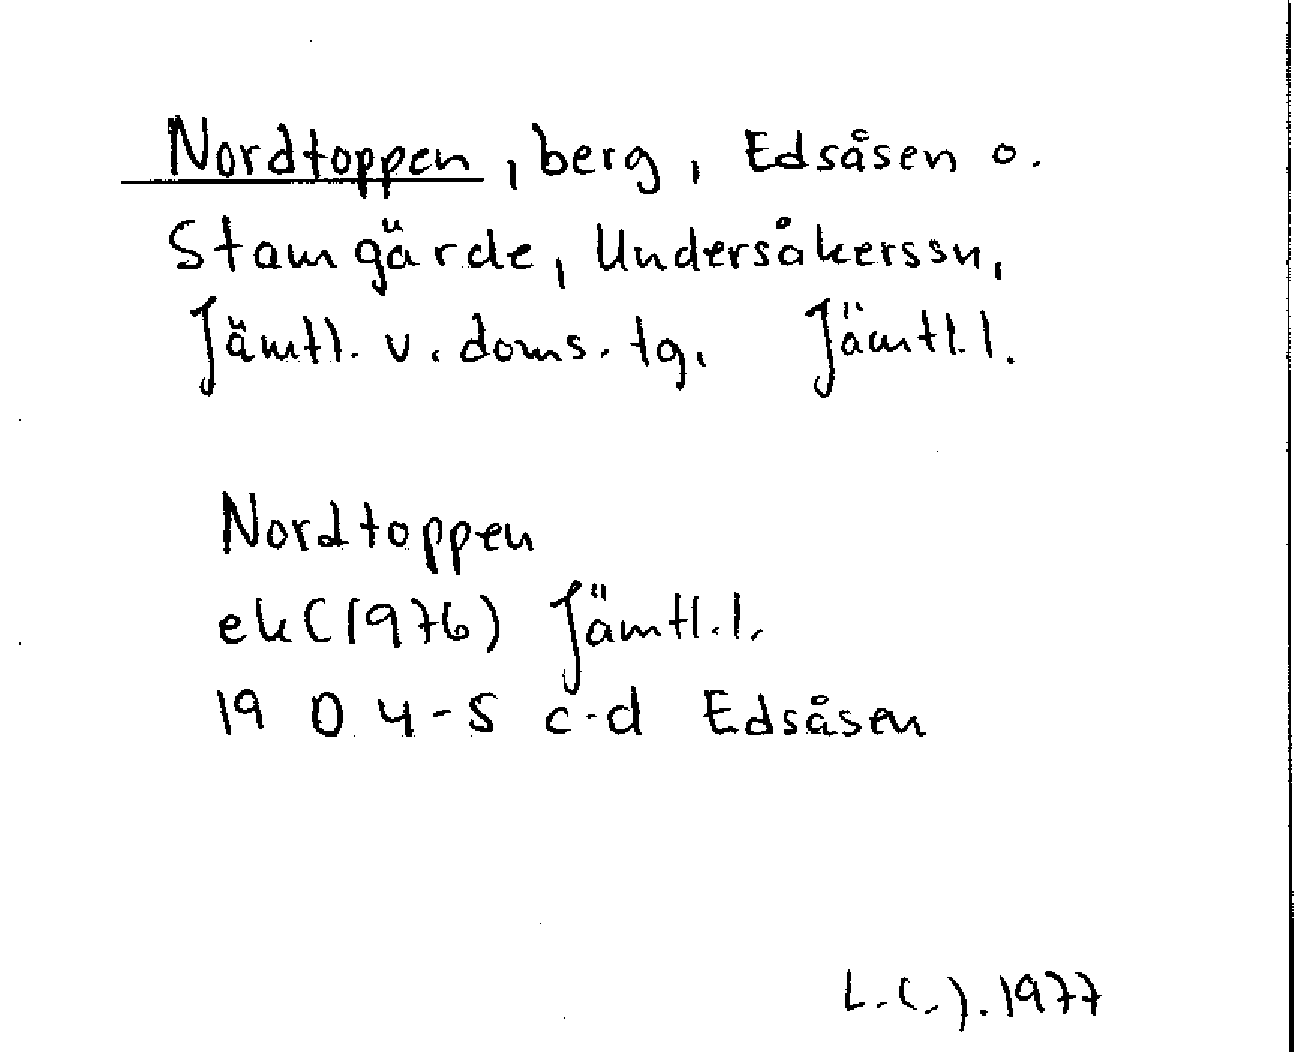 Nordtoppen, berg, Edsåsen o.
Stamgärde, Undersåkerssn,
Jämtl. v. doms. tg. Jämtl. l.
Nordtoppen
ek (1976) Jämtl. l.
19 D 4-5 c-d Edsåsen
L.C.J. 1977